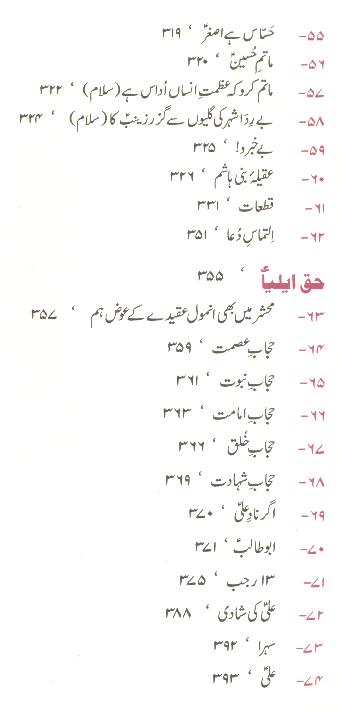 ۵۵- حسّاس ہے اصغرؑ ‘ ۳۱۹
۵۶- ماتمِ حُسینؑ ‘ ۳۲۰
۵۷- ماتم کرو کہ عظمتِ انساں اُداس ہے (سلام) ‘ ۳۲۲
۵۸- بے رِدا شہر کی گلیوں سے گزر زینبؑ کا (سلام) ‘ ۳۲۴
۵۹- بے خبرو! ‘ ۳۲۵
۶۰- عقیلۂ بنی ہاشم ‘ ۳۲۶
۶۱- قطعات ‘ ۳۳۱
۶۲- اِلتماسِ دُعا ‘ ۳۵۱
حق ایلیاؑ ‘ ۳۵۵
۶۳- محشر میں بھی انمول عقیدے کے عوض ہم ‘ ۳۵۷
۶۴- حجابِ عصمت ‘ ۳۵۹
۶۵- حجابِ نبوت ‘ ۳۶۱
۶۶- حجابِ امامت ‘ ۳۶۳
۶۷- حجابِ خُلق ‘ ۳۶۶
۶۸- حجابِ شہادت ‘ ۳۶۹
۶۹- اگر نادِ علیؑ ‘ ۳۷۰
۷۰- ابوطالبؑ ‘ ۳۷۱
۷۱- ۱۳ رجب ‘ ۳۷۵
۷۲- علیؑ کی شادی ‘ ۳۸۸
۷۳- سہرا ‘ ۳۹۲
۷۴- علیؑ ‘ ۳۹۳